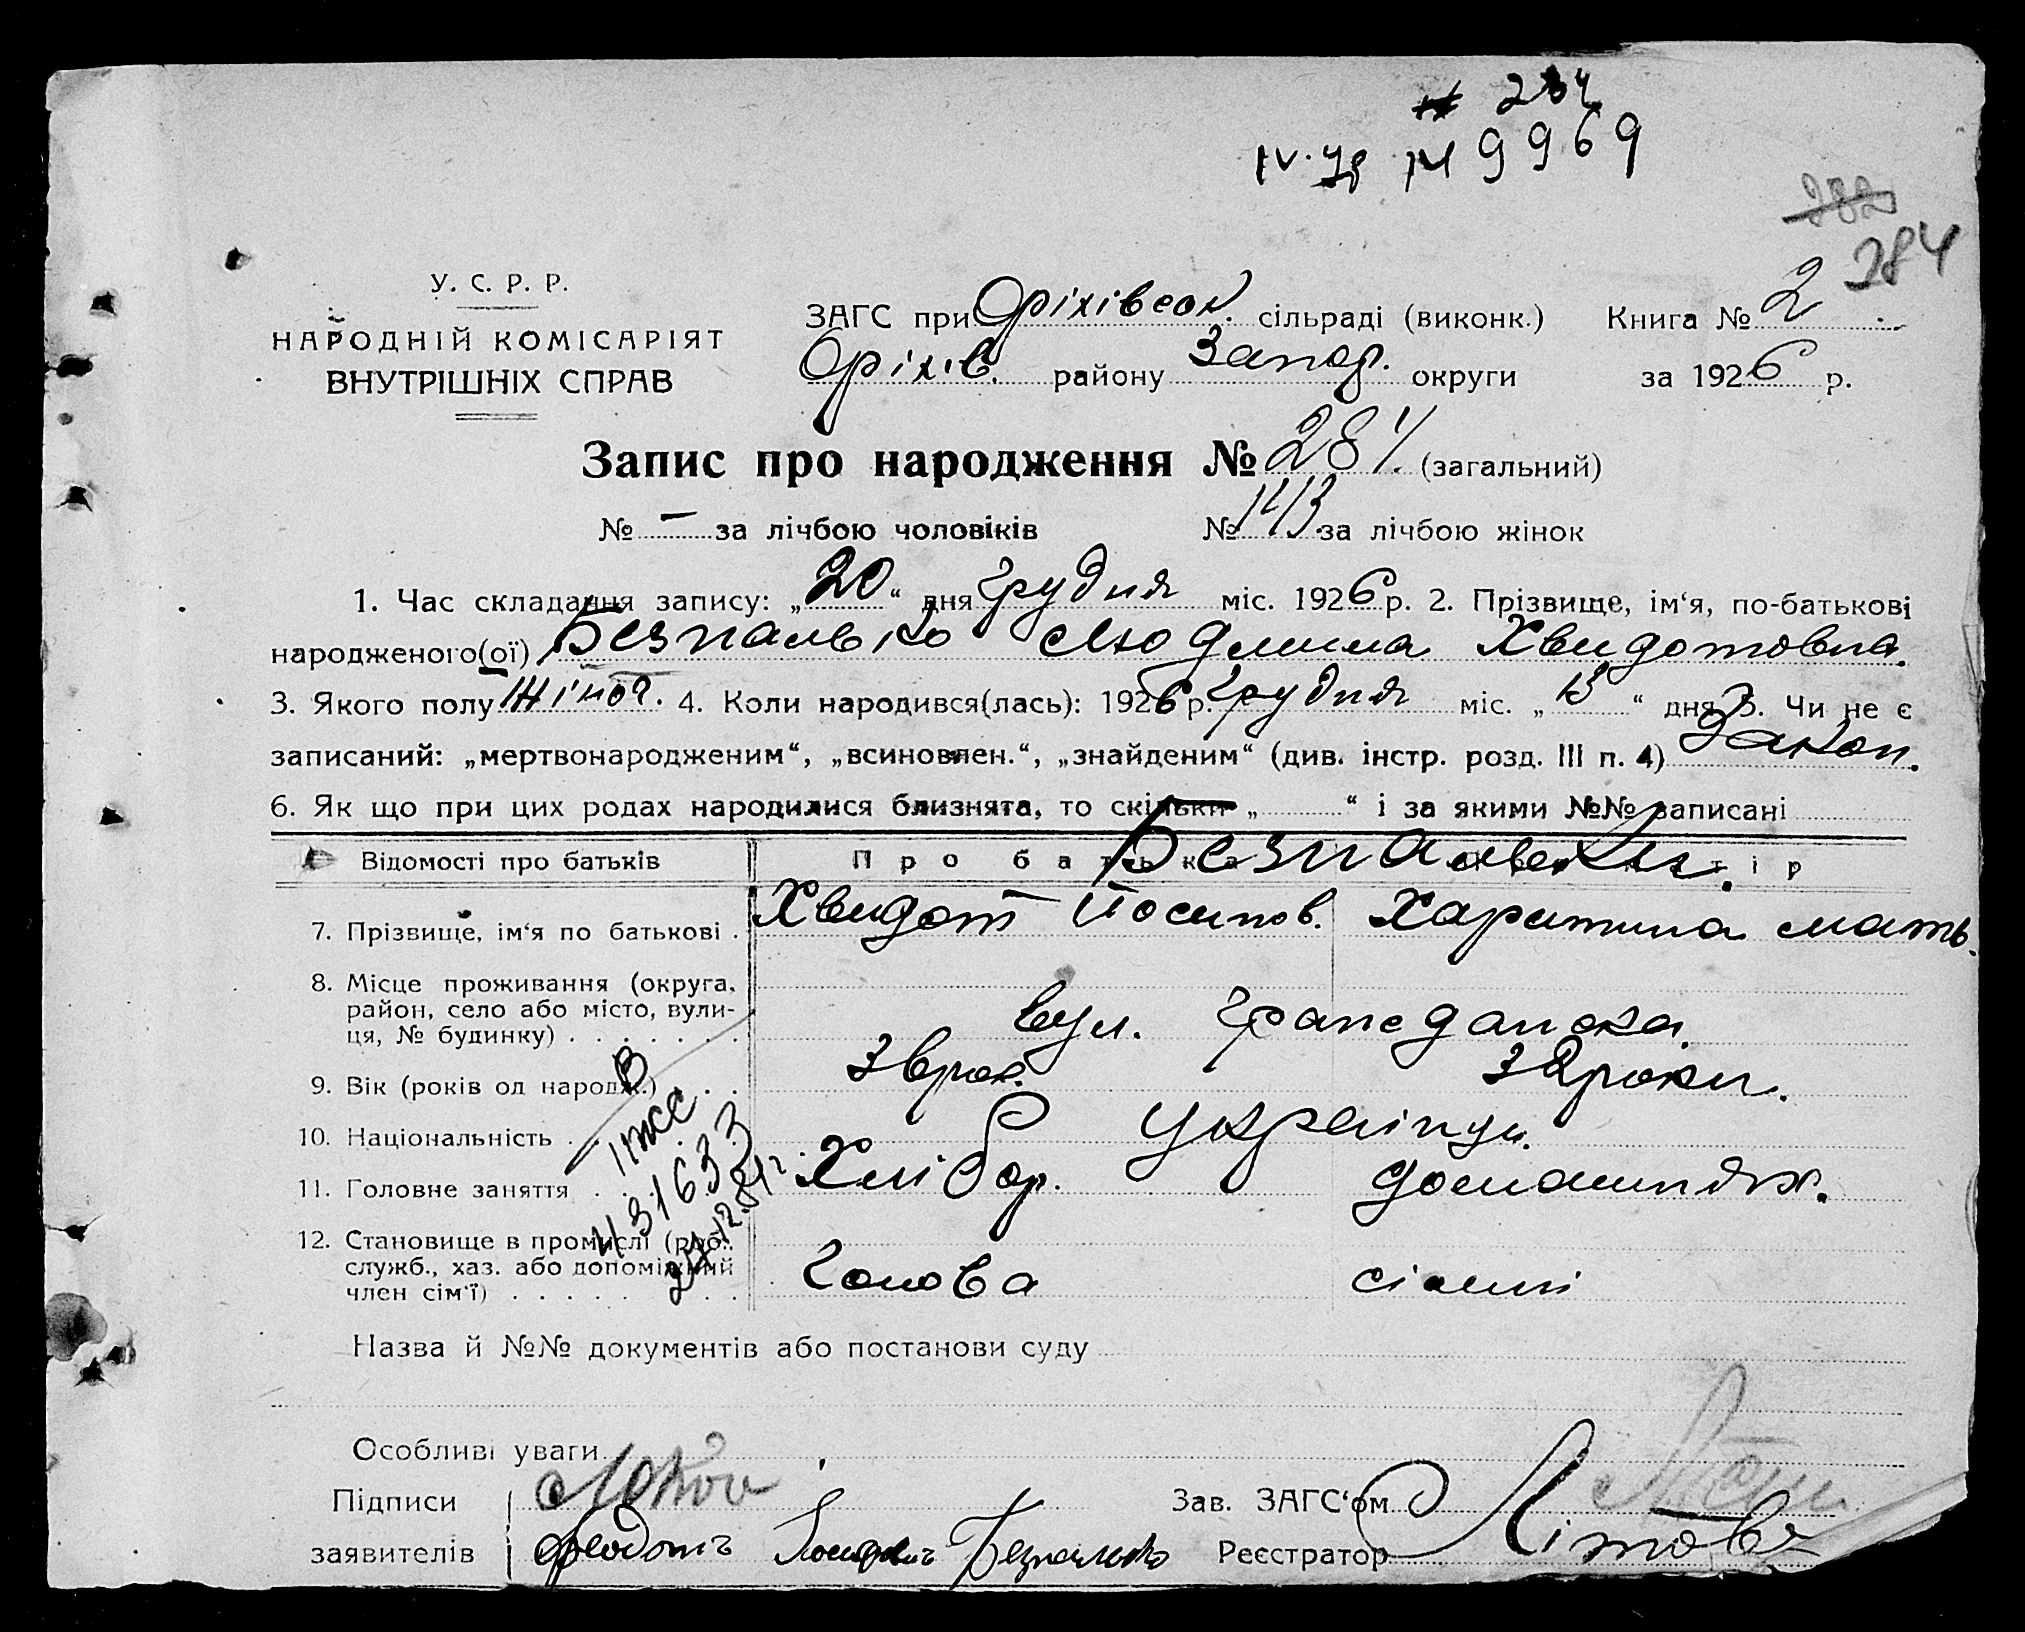 284
IV-ЖВ № 9969
282
284
У. С. Р. Р.
НАРОДНІЙ КОМІСАРІЯТ
ВНУТРІШНІХ СПРАВ
ЗАГС при Оріхівськ. сільраді (виконк.) Книга № 2
Оріхів. району Запор. округи за 1926 р.
Запис про народження № 284. (загальний)
№ — за лічбою чоловіків № 143. за лічбою жінок
1. Час складання запису: „20“ дня Грудня міс. 1926 р. 2. Прізвище, ім'я, по-батькові
народженого(ої) Безпалько Людмила Хведотовна.
3. Якого полу Жіноч. 4. Коли народився(лась): 1926 р. Грудня міс. „13“ дня 5. Чи не є
записаний: „мертвонародженим“, „всиновлен.“, „знайденим“ (див. інстр. розд. III п. 4) Закон.
6. Як що при цих родах народилися близнята, то скільки „ “ і за якими №№ записані
Відомості про батьків Про батька
Безпальки.
7. Прізвище, ім'я по батькові . Хведот Йосипов. Харитина мать.
8. Місце проживання (округа, район, село або місто, вулиця, № будинку) . . . . . . . вул. Гражданска.
9. Вік (років од народж.) . . рок. роки.
10. Національність . . Українци.
11. Головне заняття . . . Хлібор. домашнях.
12. Становище в промислі (роб., служб., хаз. або допоміжний член сім'ї) . . . . . . . Голова сімні
431633
24.12.81г.
Назва й №№ документів або постанови суду
Особливі уваги
Підписи Зав. ЗАГС'ом
заявителів Феодотъ Безпалько Реєстратор Літова